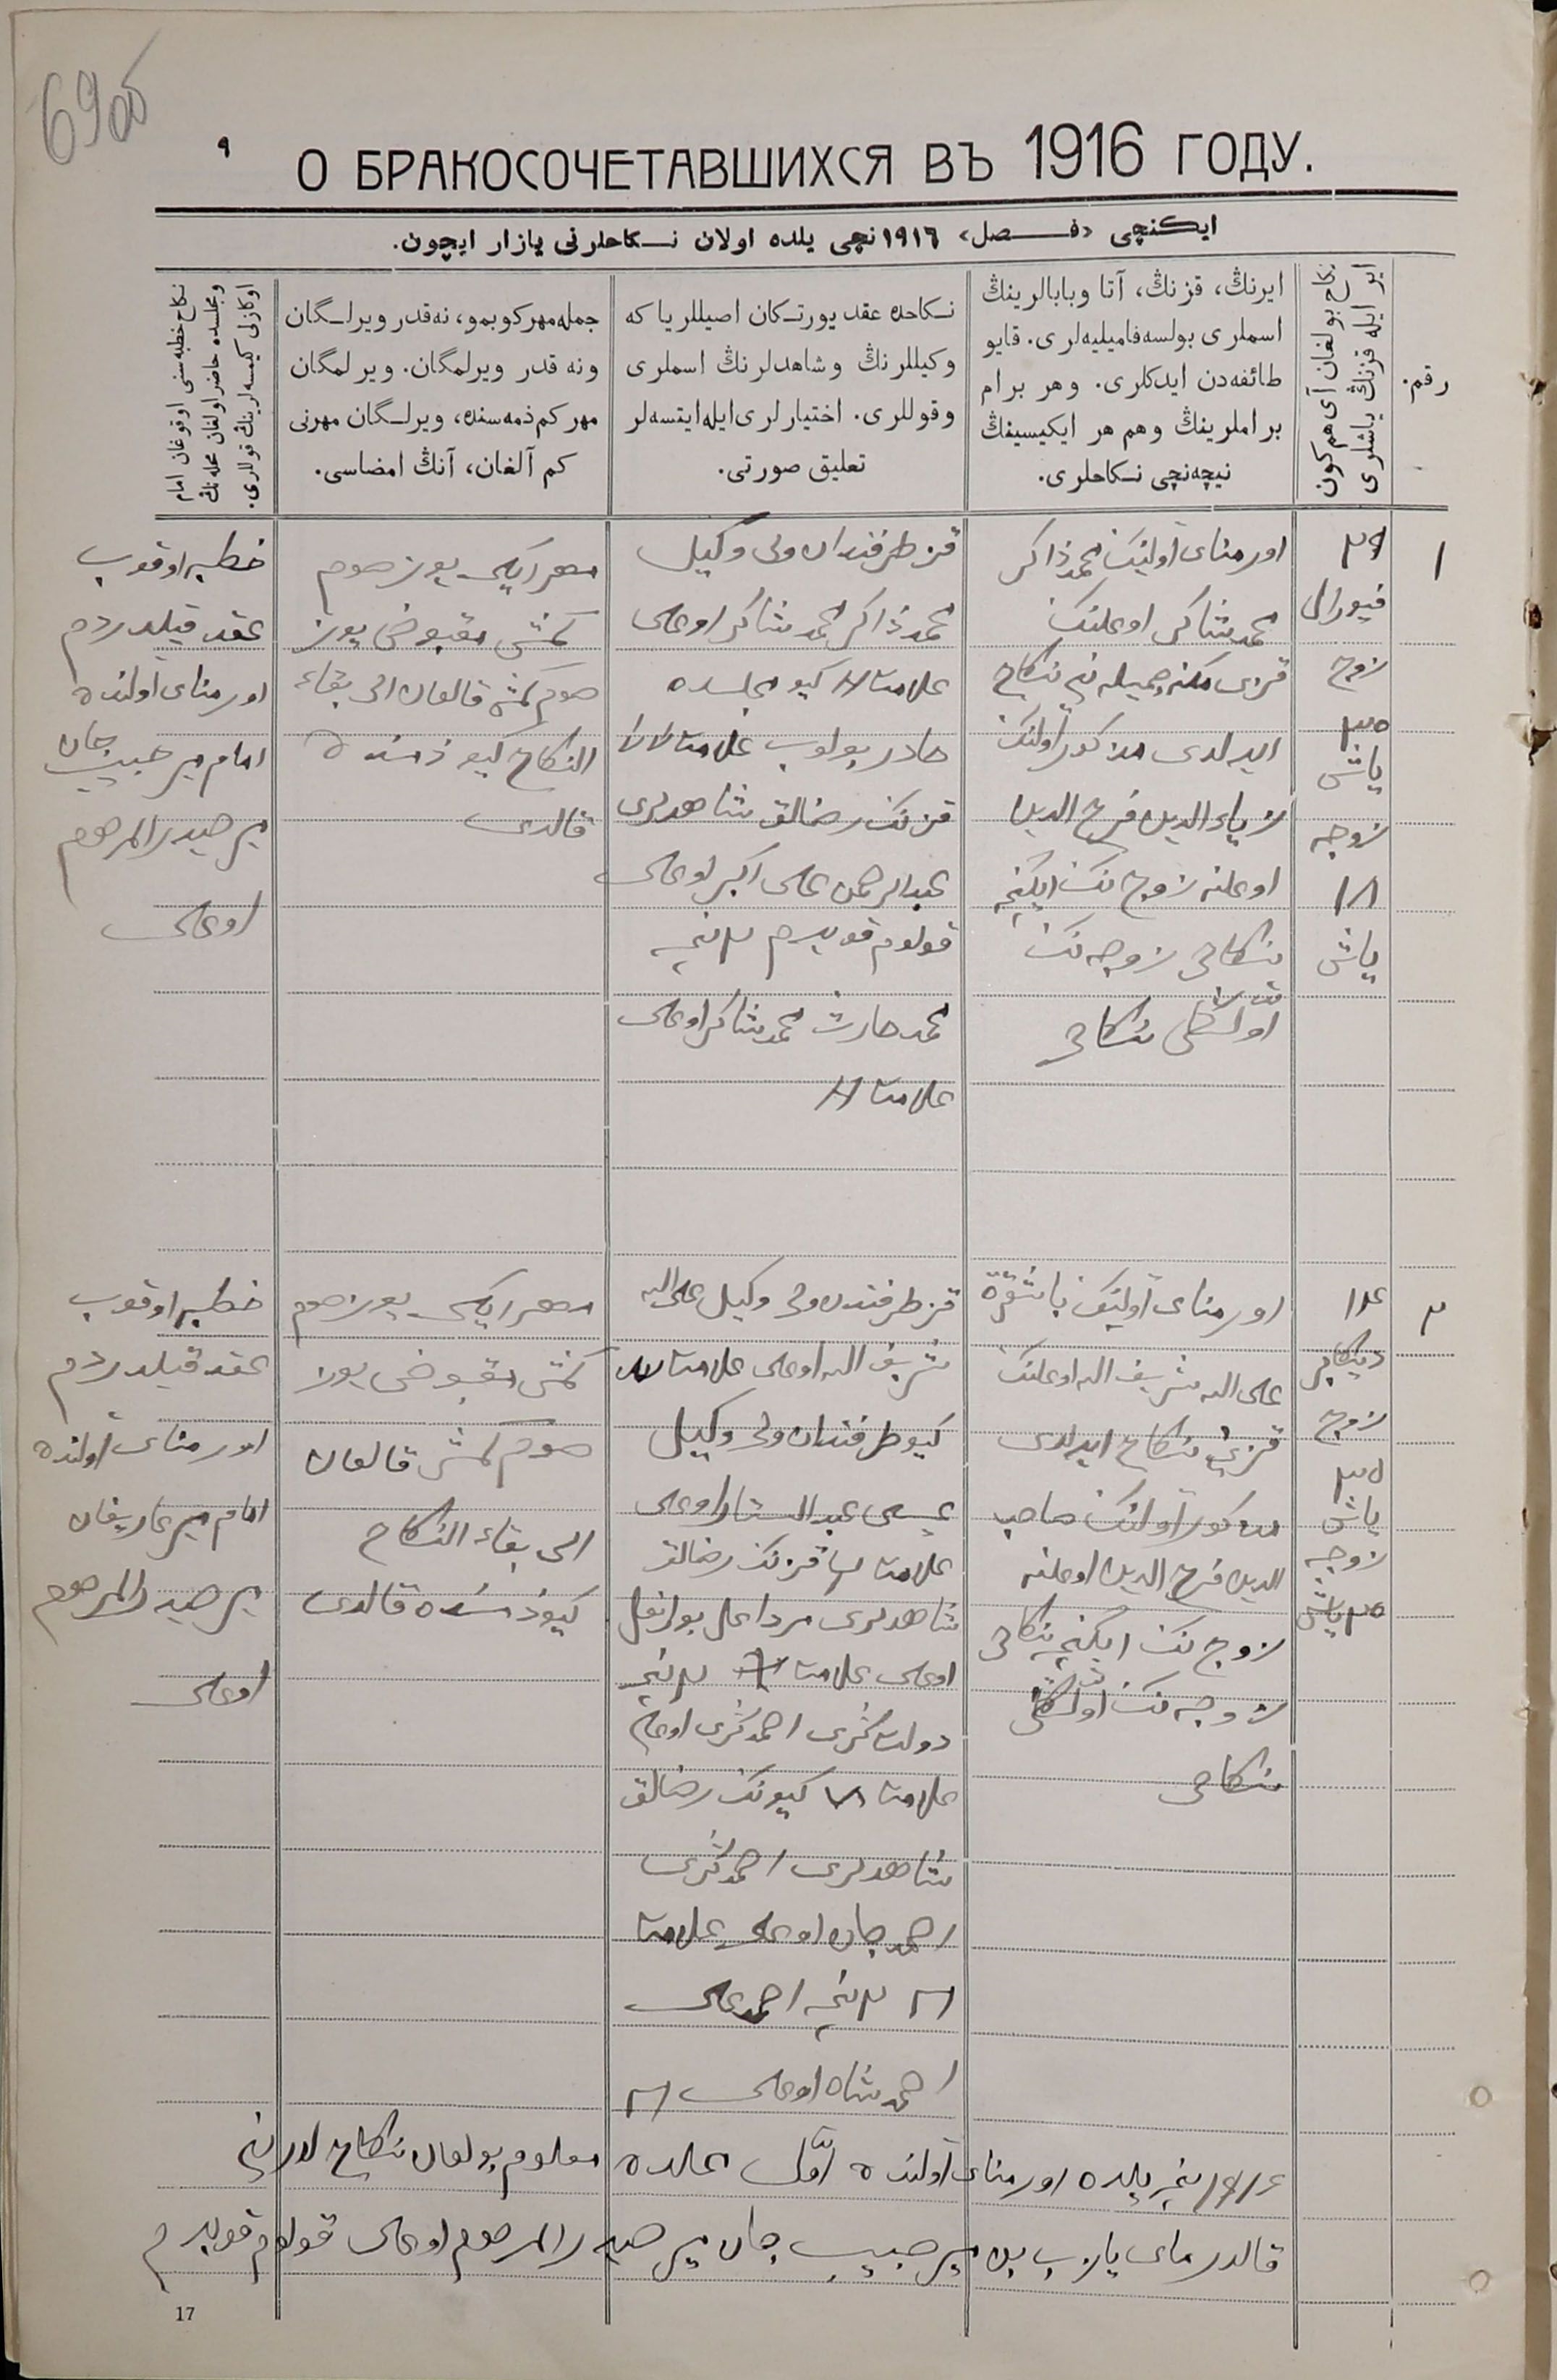 69 об
٩
О БРАКОСОЧЕТАВШИХСЯ ВЪ 1916 ГОДУ.
ایکنچی «فصل» ١٩١٦ نچی یلده اولان نکاحلرنی یازار ایچون.
رقم.
نکاح بولغان آی هم کون
ایر ایله قزنڭ یاشلری
ایرنڭ، قزنڭ، آتا وبابالرینڭ
اسملری بولسه فامیلیه‌لری. قایو
طائفه‌دن ایدکلری. وهر برام
براملرینڭ وهم هر ایکیسینڭ
نیچه‌نچی نکاحلری.
نکاحده عقد یورتکان اصیللر یا که
وکیللرنڭ وشاهدلرنڭ اسملری
وقوللری. اختیارلری ایله ایتسه‌لر
تعلیق صورتی.
جمله مهر کوبمو، نه‌قدر ویرلگان
ونه قدر ویرلمگان. ویرلمگان
مهر کم ذمه‌سنده، ویرلگان مهرنی
کم آلغان، آنڭ امضاسی.
نکاح خطبه‌سنی اوقوغان امام
ومجلسده حاضر اولغان محله‌نڭ
اوکازلی کیمسه‌لرینڭ قوللری.
١
٢٩
فیورالی
زوج
٣٥
یاش
زوجه
١٨
یاش
اورمنای آولینک محمدذاکر
محمدشاکر اوغلینک
قزی مکنه جمیله نی نکاح
ایدلدی مذکور آولنک
ضیاء الدین فرح الدین
اوغلنه زوج نک ایکنچی
نکاحی زوجه نک
اولکی نکاحی
قز طرفندان ولی وکیل
محمدذاکر محمدشاکر اوغلی
علامت کیو مجلسده
حاضر بولوب علامت
قز نک رضالق شاهدلری
عبدالرحمن علی اکبر اوغلی
قولوم قویدم ٢ نچی
محمد حارث محمدشاکر اوغلی
علامت
مهر ایکی یوز صوم
کمش مقبوض یوز
صوم کمش قالغان الی بقاء
النکاح کیو ذمسنده
قالدی
خطبه اوقوب
عقد قیلدردم
اورمنای آولنده
امام میر حبیب جان
میر حیدر المرحوم
اوغلی
٢
١٤
دیکابر
زوج
٣٥
یاش
زوجه
٢٥ یاش
اورمنای آولینک
علی الله شریف الله اوغلینک
قزینی نکاح ایدلدی
مذکور آولنک صاحب
الدین فرح الدین اوغلنه
زوج نک ایکنچی نکاحی
زوجه نک اولکی
نکاحی
قز طرفندن ولی وکیل علی الله
شریف الله اوغلی علامت
کیو طرفندان ولی وکیل
عیسی عبدالستار اوغلی
علامت قز نک رضالق
شاهدلری
اوغلی علامت ٢ نچی
اوغلی
علامت کیونک رضالق
شاهدلری
احمدجان اوغلی علامت
٢ نچی احمدعلی
احمدشاه اوغلی
مهر ایکی یوز صوم
کمش مقبوض یوز
صوم کمش قالغان
الی بقاء النکاح
کیو ذمسنده قالدی
خطبه اوقوب
عقد قیلدردم
اورمنای آولنده
امام میر
میر حیدر المرحوم
اوغلی
١٩١٦ نچی یلده اورمنای آولنده اول محلده معلوم بولغان نکاح لرنی
قالدرمای یازب بن میر حبیب جان میر حیدر المرحوم اوغلی قولوم قویدم
17